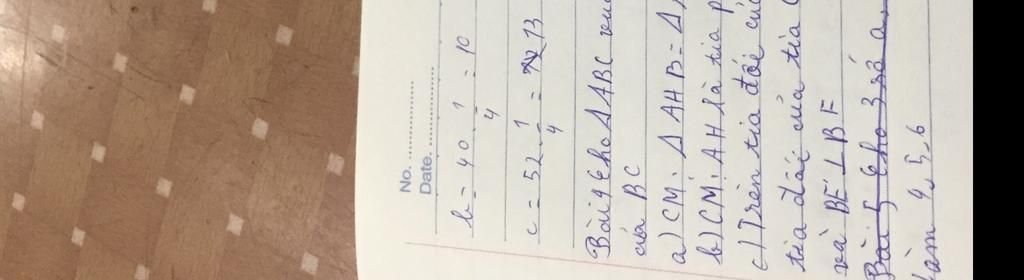 No. ..................
Date. ..................
b = 40 . 1/4 = 10
c = 52 . 1/4 = 13
Bài 4 Cho ΔABC
của BC
a) CM: ΔAHB = Δ
b) CM: AH là tia
c) Trên tia đối
tia đối của tia
và BE ⊥ BF
Bài 5 Cho 3 số a
Làm 4, 5, 6